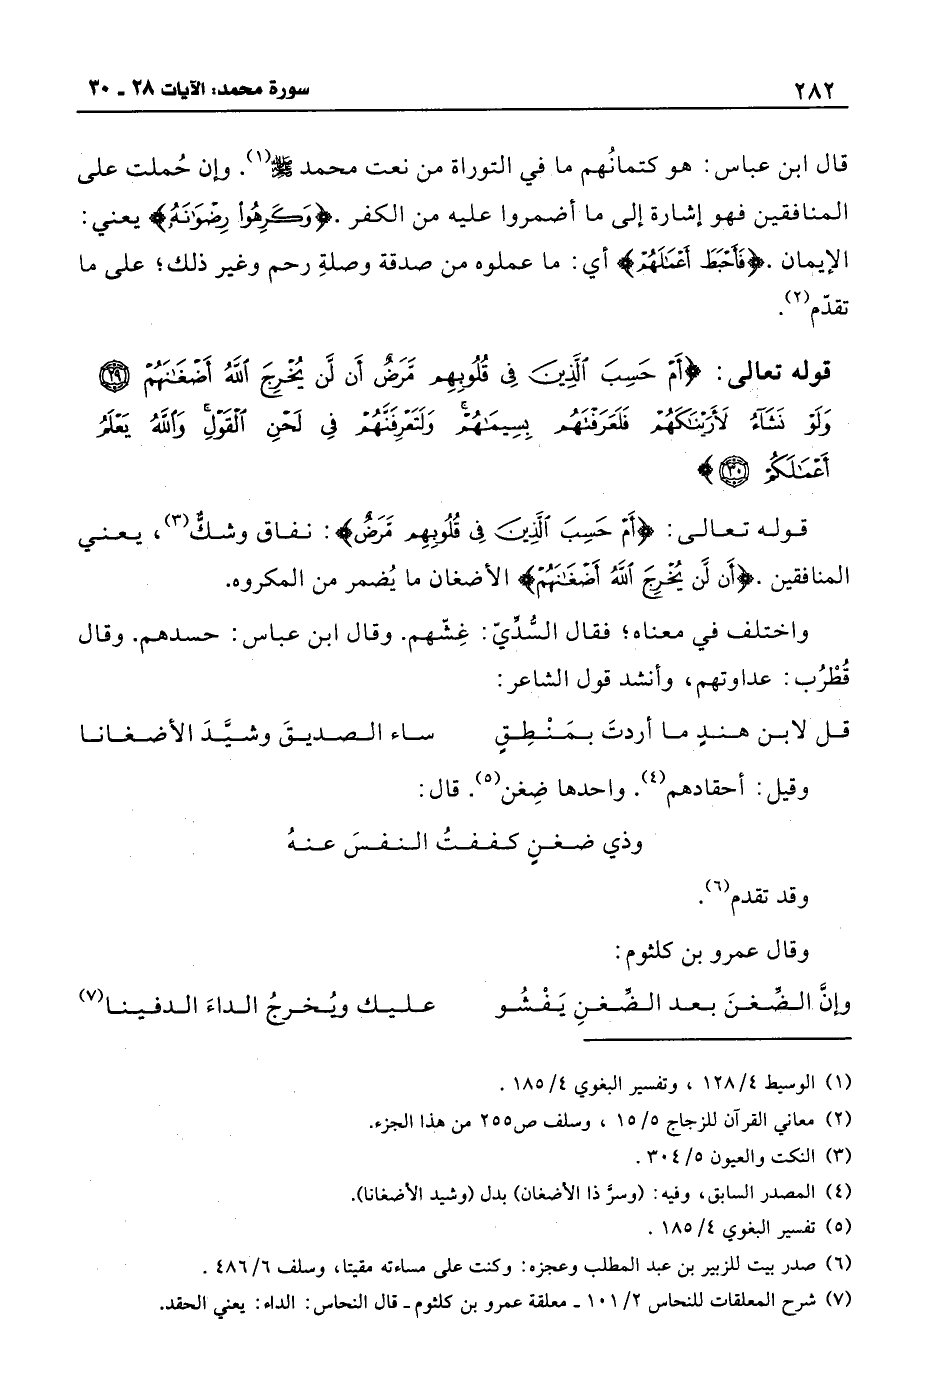 ٢٨٢ سورة محمد: الآيات ٢٨ ـ ٣٠
قال ابن عباس: هو كتمانُهم ما في التوراة من نعت محمد ﷺ(١). وإن حُملت على
المنافقين فهو إشارة إلى ما أضمروا عليه من الكفر. ﴿وَكَرِهُوا رِضْوَانَهُ﴾ يعني:
الإيمان. ﴿فَأَحْبَطَ أَعْمَالَهُمْ﴾ أي: ما عملوه من صدقة وصلةِ رحم وغير ذلك؛ على ما
تقدّم(٢).
قوله تعالى: ﴿أَمْ حَسِبَ ٱلَّذِينَ فِى قُلُوبِهِم مَّرَضٌ أَن لَّن يُخْرِجَ ٱللَّهُ أَضْغَـٰنَهُمْ ٢٩
وَلَوْ نَشَآءُ لَأَرَيْنَـٰكَهُمْ فَلَعَرَفْتَهُم بِسِيمَـٰهُمْ ۚ وَلَتَعْرِفَنَّهُمْ فِى لَحْنِ ٱلْقَوْلِ ۚ وَٱللَّهُ يَعْلَمُ
أَعْمَـٰلَكُمْ ٣٠﴾
قوله تعالى: ﴿أَمْ حَسِبَ ٱلَّذِينَ فِى قُلُوبِهِم مَّرَضٌ﴾: نفاق وشكٌّ(٣)، يعني
المنافقين. ﴿أَن لَّن يُخْرِجَ ٱللَّهُ أَضْغَـٰنَهُمْ﴾ الأضغان ما يُضمر من المكروه.
واختلف في معناه؛ فقال السُّدّيّ: غِشّهم. وقال ابن عباس: حسدهم. وقال
قُطْرُب: عداوتهم، وأنشد قول الشاعر:
قل لابن هندٍ ما أردتَ بمَنْطِقٍ ساء الصديقَ وشيَّدَ الأضغانا
وقيل: أحقادهم(٤). واحدها ضِغن(٥). قال:
وذي ضغنٍ كففتُ النفسَ عنهُ
وقد تقدم(٦).
وقال عمرو بن كلثوم:
وإنَّ الضِّغنَ بعد الضِّغنِ يَفْشُو عليك ويُخرجُ الداءَ الدفينا(٧)
(١) الوسيط ٤/ ١٢٨ ، وتفسير البغوي ٤/ ١٨٥ .
(٢) معاني القرآن للزجاج ٥/ ١٥ ، وسلف ص٢٥٥ من هذا الجزء.
(٣) النكت والعيون ٥/ ٣٠٤ .
(٤) المصدر السابق، وفيه: (وسرَّ ذا الأضغان) بدل (وشيد الأضغانا).
(٥) تفسير البغوي ٤/ ١٨٥ .
(٦) صدر بيت للزبير بن عبد المطلب وعجزه: وكنت على مساءته مقيتا، وسلف ٦/ ٤٨٦ .
(٧) شرح المعلقات للنحاس ٢/ ١٠١ ـ معلقة عمرو بن كلثوم ـ قال النحاس: الداء: يعني الحقد.